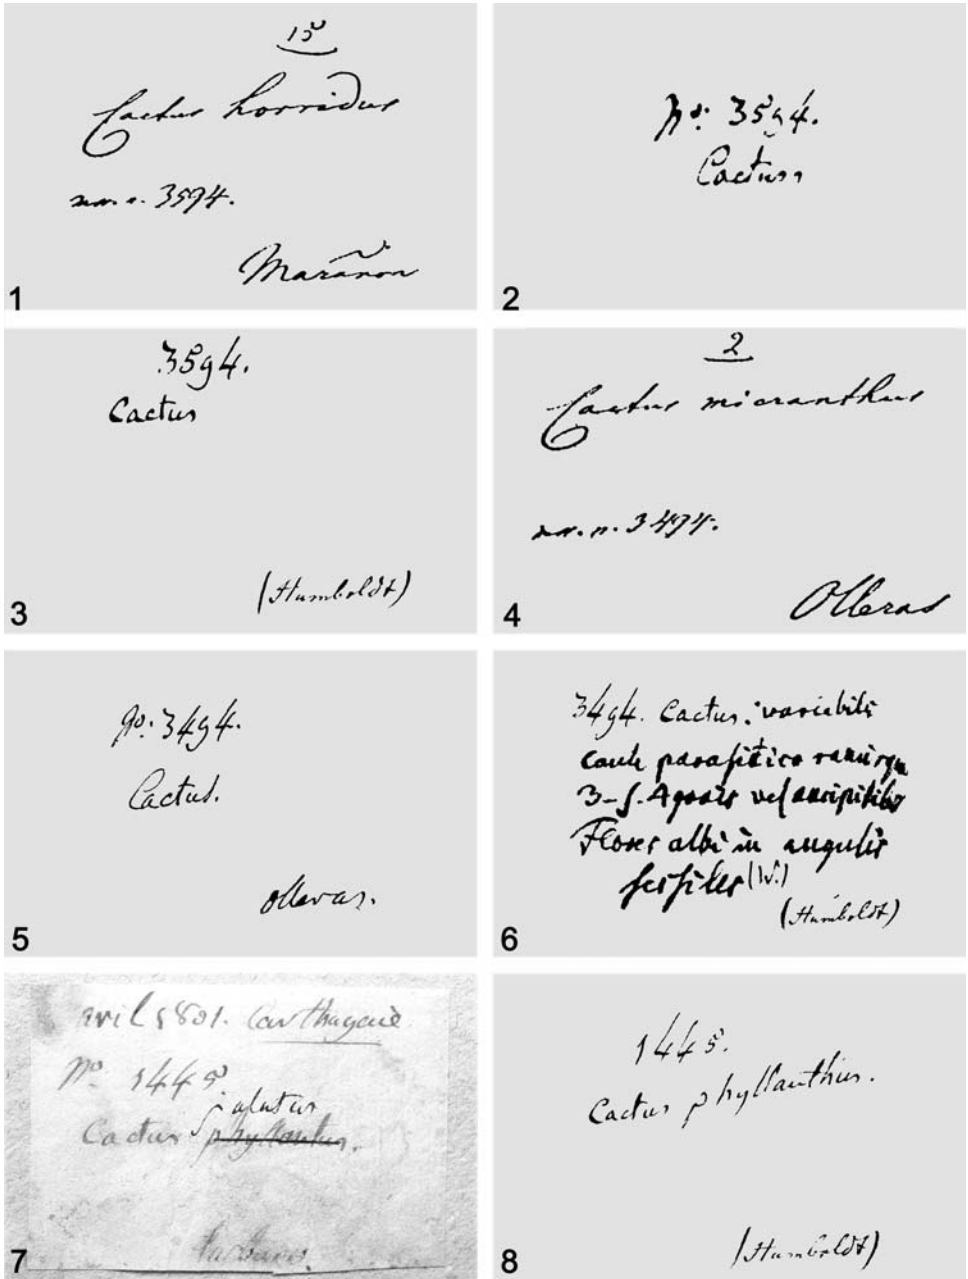 15
Cactus horridus
n. 3594.
Marañon
1
No: 3594.
Cactus
2
3594.
Cactus
(Humboldt)
3
2
Cactus micranthus
n. 3494.
Olleras
4
No: 3494.
Cactus.
olleras.
5
3494. Cactus variabilis
caule parasitico
3-5. vel ancipitibus
Flores albi in angulis
sessiles (W.)
(Humboldt)
6
avril 1801. Carthagene
No. 1445.
alatus
Cactus phyllantus.
7
1445.
Cactus phyllanthus.
(Humboldt)
8